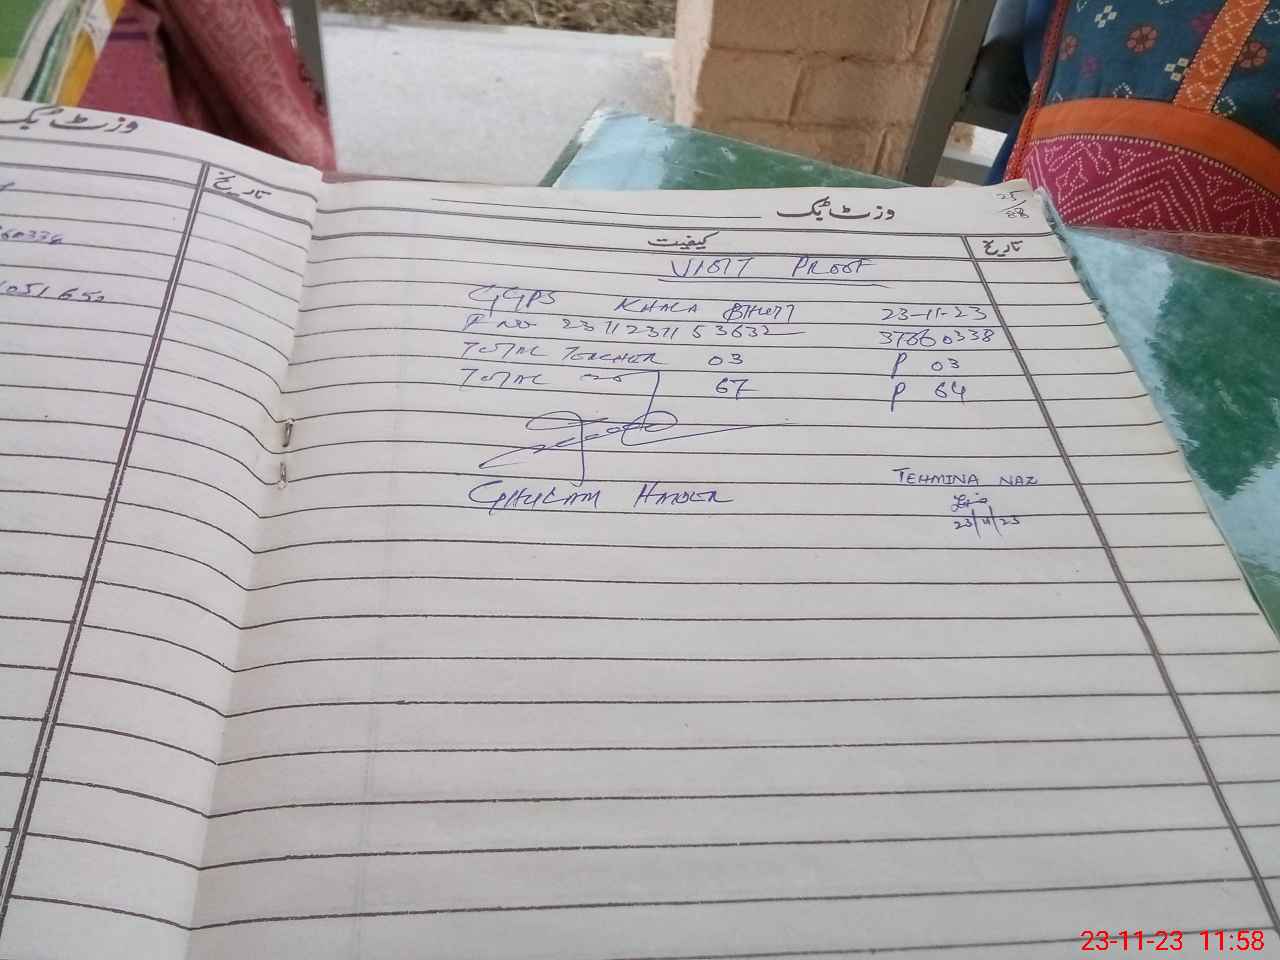 وزٹ بک
تاریخ
60338
1051650
وزٹ بک
25/88
کیفیت
تاریخ
VISIT PROOF
GGPS KHALA BHUTT 23-11-23
R NO 2311231153632 37660338
TOTAL TEACHER 03 P 03
TOTAL 67 P 64
GHULAM HAIDER
TEHMINA NAZ
23/11/23
23-11-23 11:58